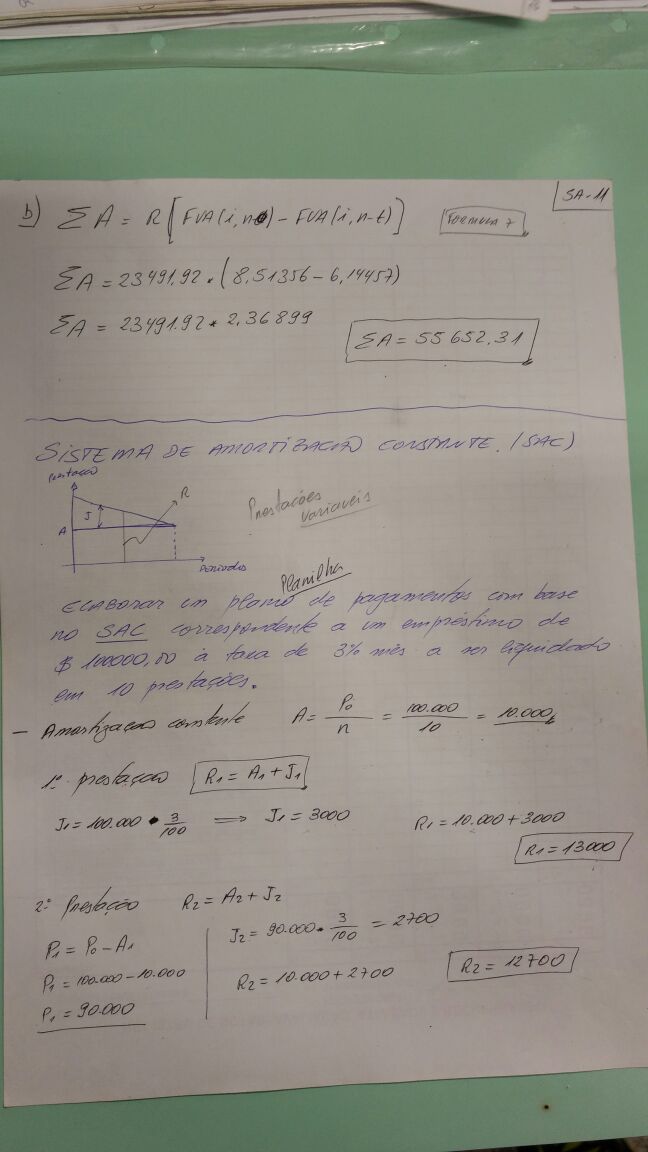 SA-11
b) ΣA = R [FVA(i,n) - FVA(i,n-t)] FORMULA 7
ΣA = 23491,92 * (8,51356 - 6,14457)
ΣA = 23491.92 * 2,36899
ΣA = 55652,31
SISTEMA DE AMORTIZAÇÃO CONSTANTE. (SAC)
Prestação
J
R
A
Períodos
Prestações
variaveis
Planilha
ELABORAR um plano de pagamentos com base
no SAC correspondente a um empréstimo de
$ 100000,00 à taxa de 3% mês a ser liquidado
em 10 prestações.
- Amortização constante A = P₀/n = 100.000/10 = 10.000
1ª prestação R₁ = A₁ + J₁
J₁ = 100.000 • 3/100 ⟹ J₁ = 3000 R₁ = 10.000 + 3000
R₁ = 13000
2ª Prestação R₂ = A₂ + J₂
P₁ = P₀ - A₁ J₂ = 90.000 • 3/100 = 2700
P₁ = 100.000 - 10.000 R₂ = 10.000 + 2700 R₂ = 12700
P₁ = 90.000